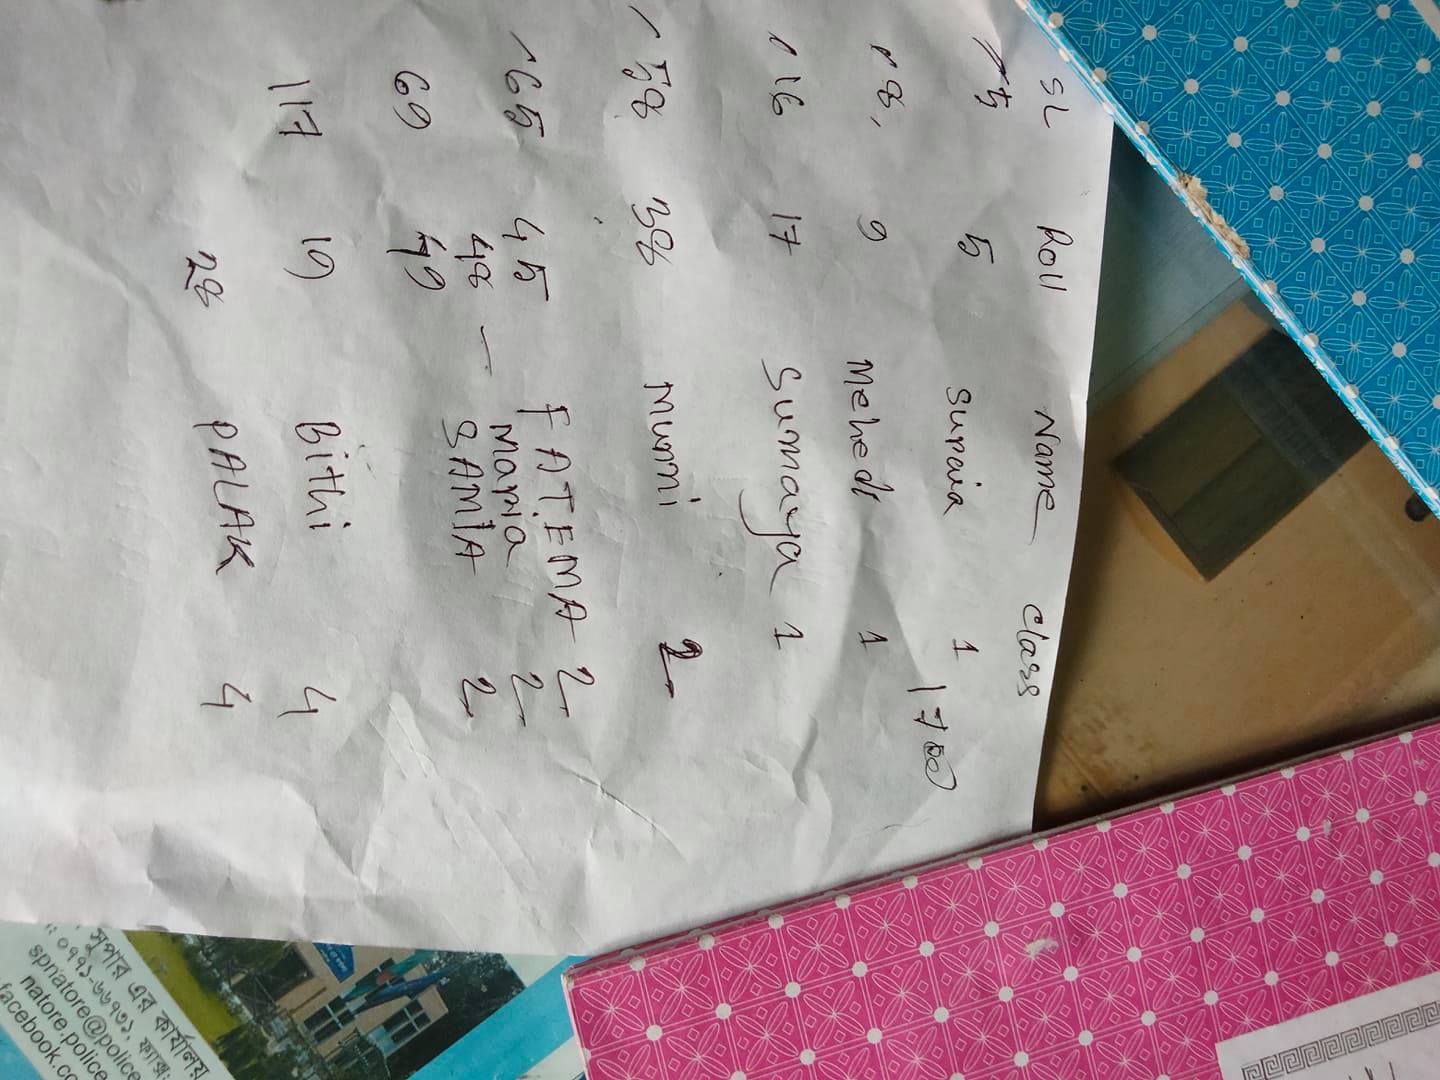 SL Roll Name Class
5 5 Suraia 1
1700
8, 9 Mehedi 1
16 17 Sumaya 1
58 38 Munni 2
65 45 FATEMA 2
48 — Maria 2
69 49 SAMIA 2
117 19 Bithi 4
28 PALAK 4
সুপার এর কার্যালয়
০৭৭১-৬৬৭৩১, ফ্যাক্স:
spnatore@police
natore.police
facebook.co